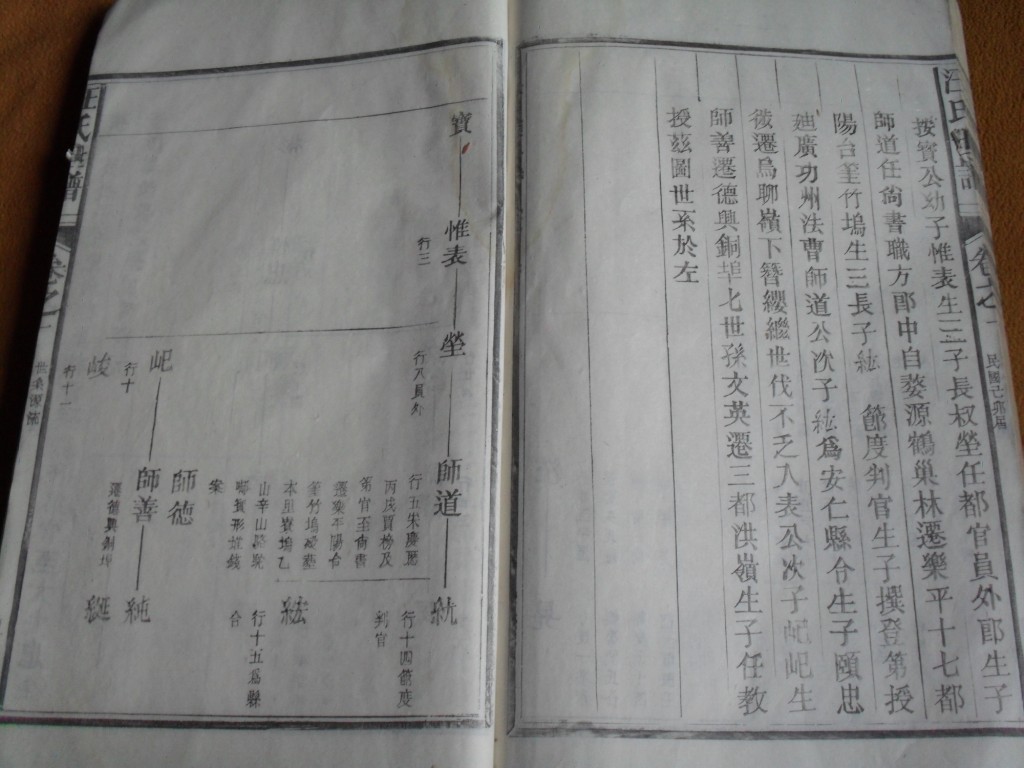 汪氏
卷之一
民國己
按實公幼子惟表生三子長权塋任都官員外郎生子
師道任尚書職方郎中自婺源鶴巢林遷樂平十七都
陽台里竹塢生三長子絋 節度判官生子撰登第授
廸廣功州法曹師道公次子紘爲安仁縣令生子頤忠
後遷烏聊嶺下簪纓繼世代不乏人表公次子屺屺生
師善遷德興銅埠七世孫文英遷三都洪嶺生子任教
授兹圖世系於左
寳
惟表
行三
塋
行八員外
師道
行五宋慶曆
丙戌賈榜及
第官至尚書
遷樂平陽台
里竹塢
本里寮塢乙
山辛山
案
絖
行十四節度
判官
紘
行十五爲縣
令
屺
行十
師德
師善
遷德興銅埠
純
綖
峻
行十一
汪氏
譜
卷之一